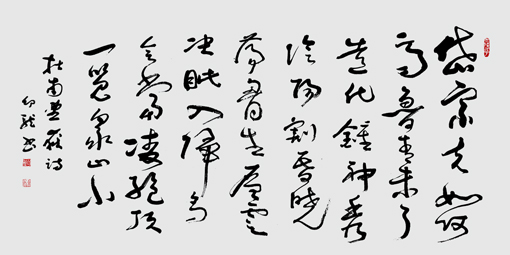 岱宗夫如何
齊魯青未了
造化鍾神秀
陰陽割昏曉
蕩胸生層雲
決眥入歸鳥
會當凌絕頂
一覽眾山小
杜甫望嶽詩